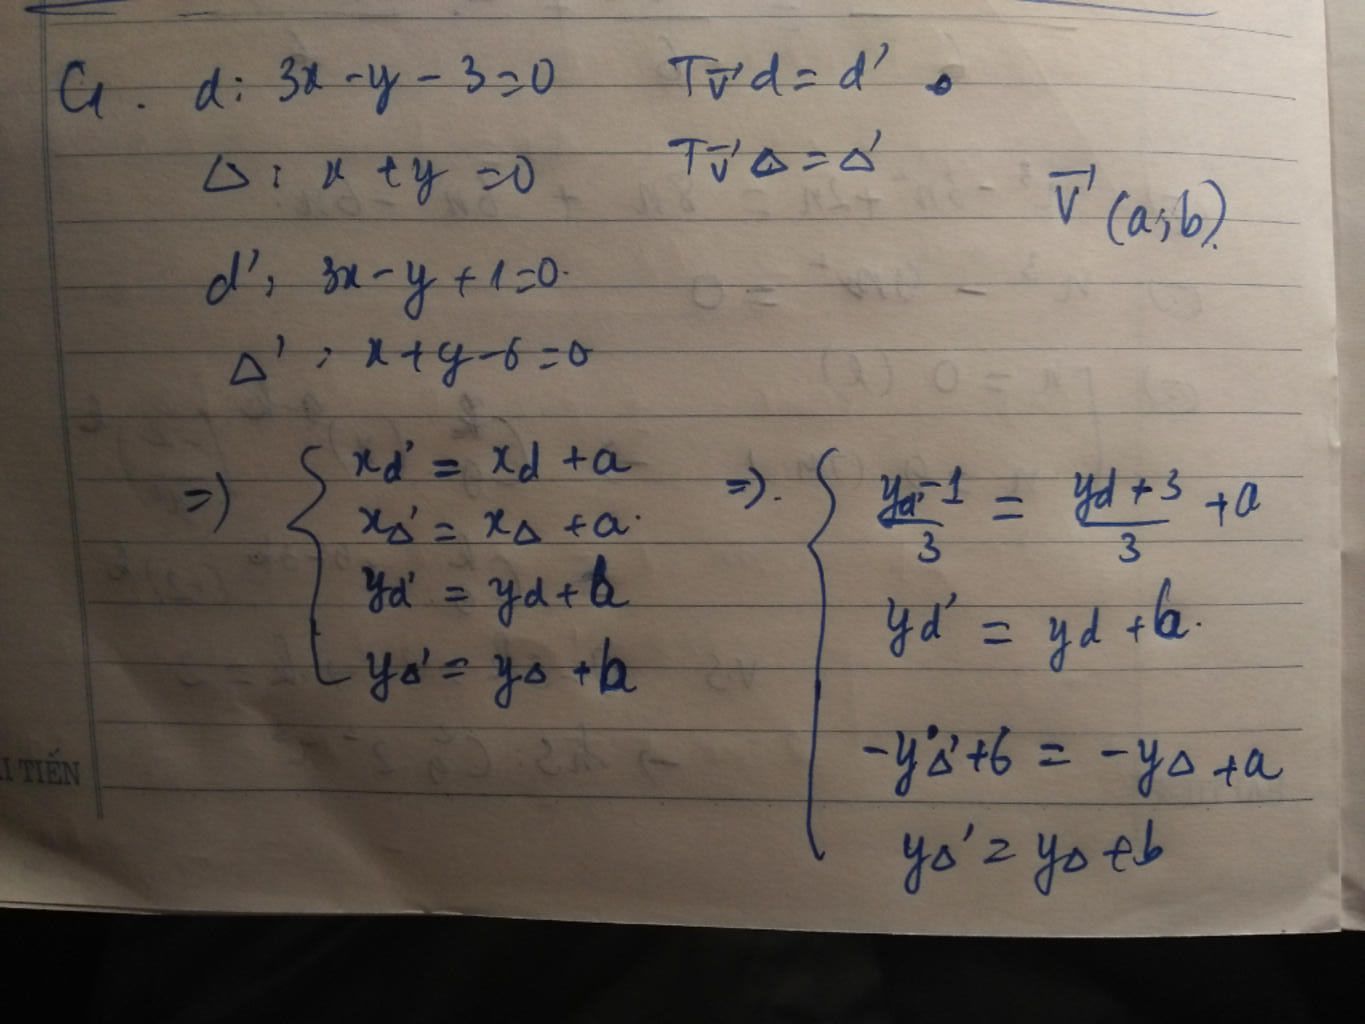 G. d: 3x - y - 3 = 0 Tv⃗ d = d'
Δ: x + y = 0 Tv⃗ Δ = Δ'
v⃗ (a;b).
d': 3x - y + 1 = 0.
Δ': x + y - 6 = 0
=> { xd' = xd + a
xΔ' = xΔ + a.
yd' = yd + b
yΔ' = yΔ + b
=>. { (yd' - 1)/3 = (yd + 3)/3 + a
yd' = yd + b.
-yΔ' + 6 = -yΔ + a
yΔ' = yΔ + b
TIẾN